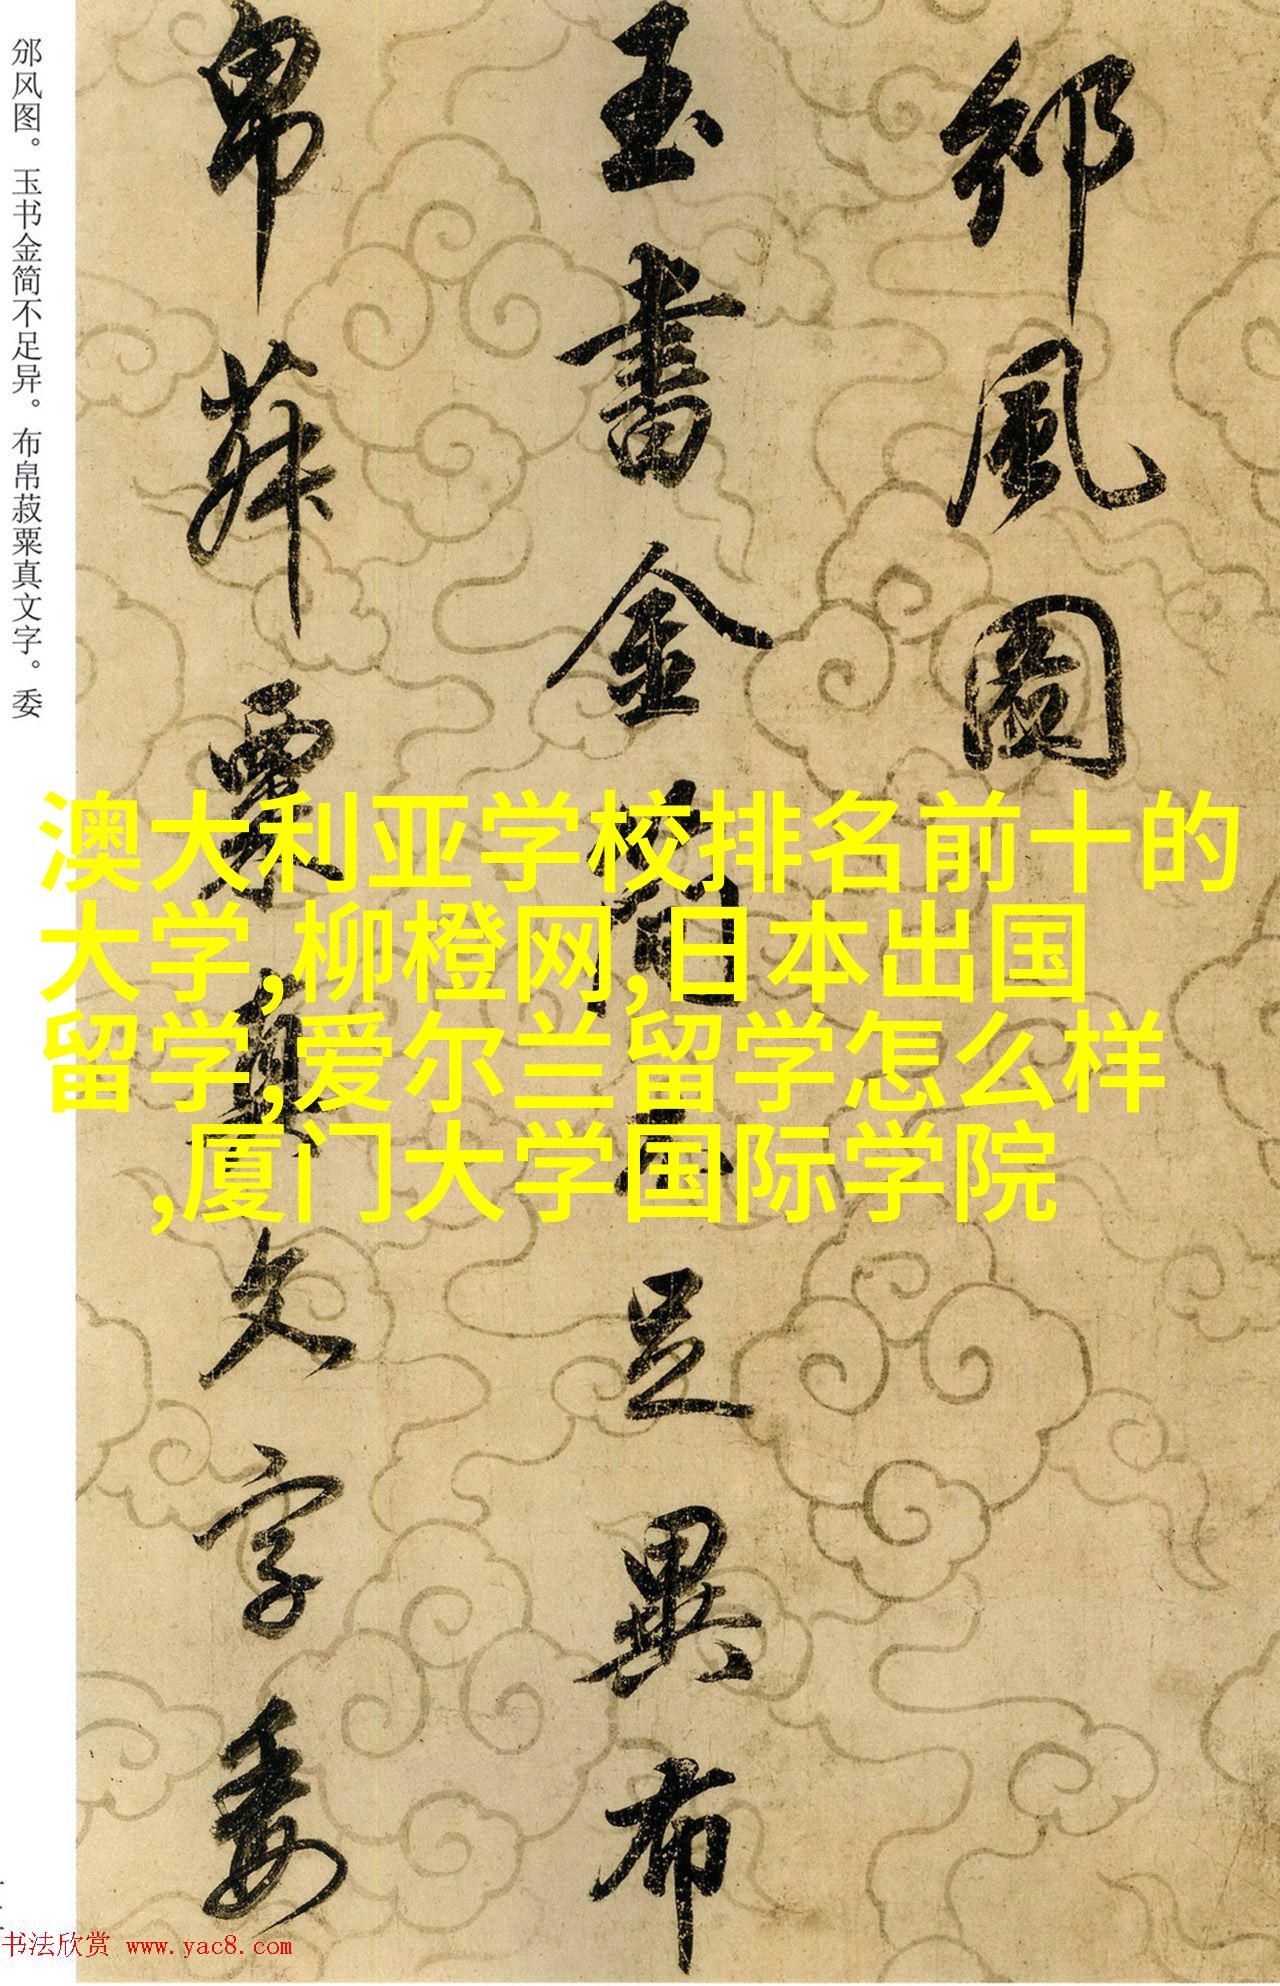 邠風圖
玉書金簡不足異布
帛菽粟真文字委
邠风图。玉书金简不足异。布帛菽粟真文字。委
澳大利亚学校排名前十的
大学,柳橙网,日本出国
留学,爱尔兰留学怎么样
,厦门大学国际学院
书法欣赏 www.yac8.com